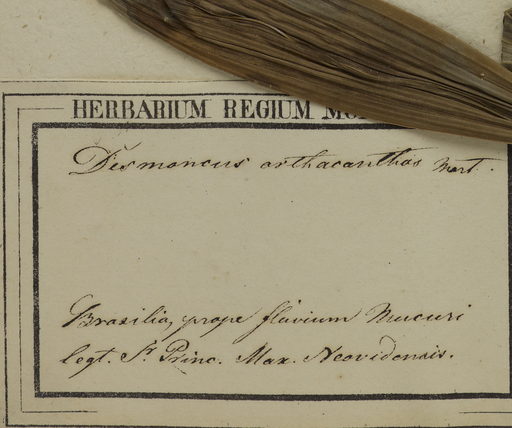 HERBARIUM REGIUM MO
Desmoncus orthacanthos Mart.
Brasilia, prope flüvium Mucuri
legt. Sr. Princ. Max. Neovidensis.